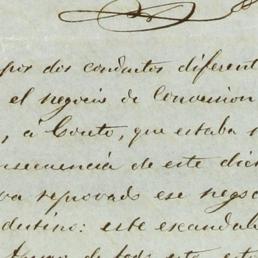 por dos conductos diferent
el negocio de Concession
, á Couto, que estaba
nsecuencia de este dic
va reprovado ese nego
destino: este escandal
de todo esto